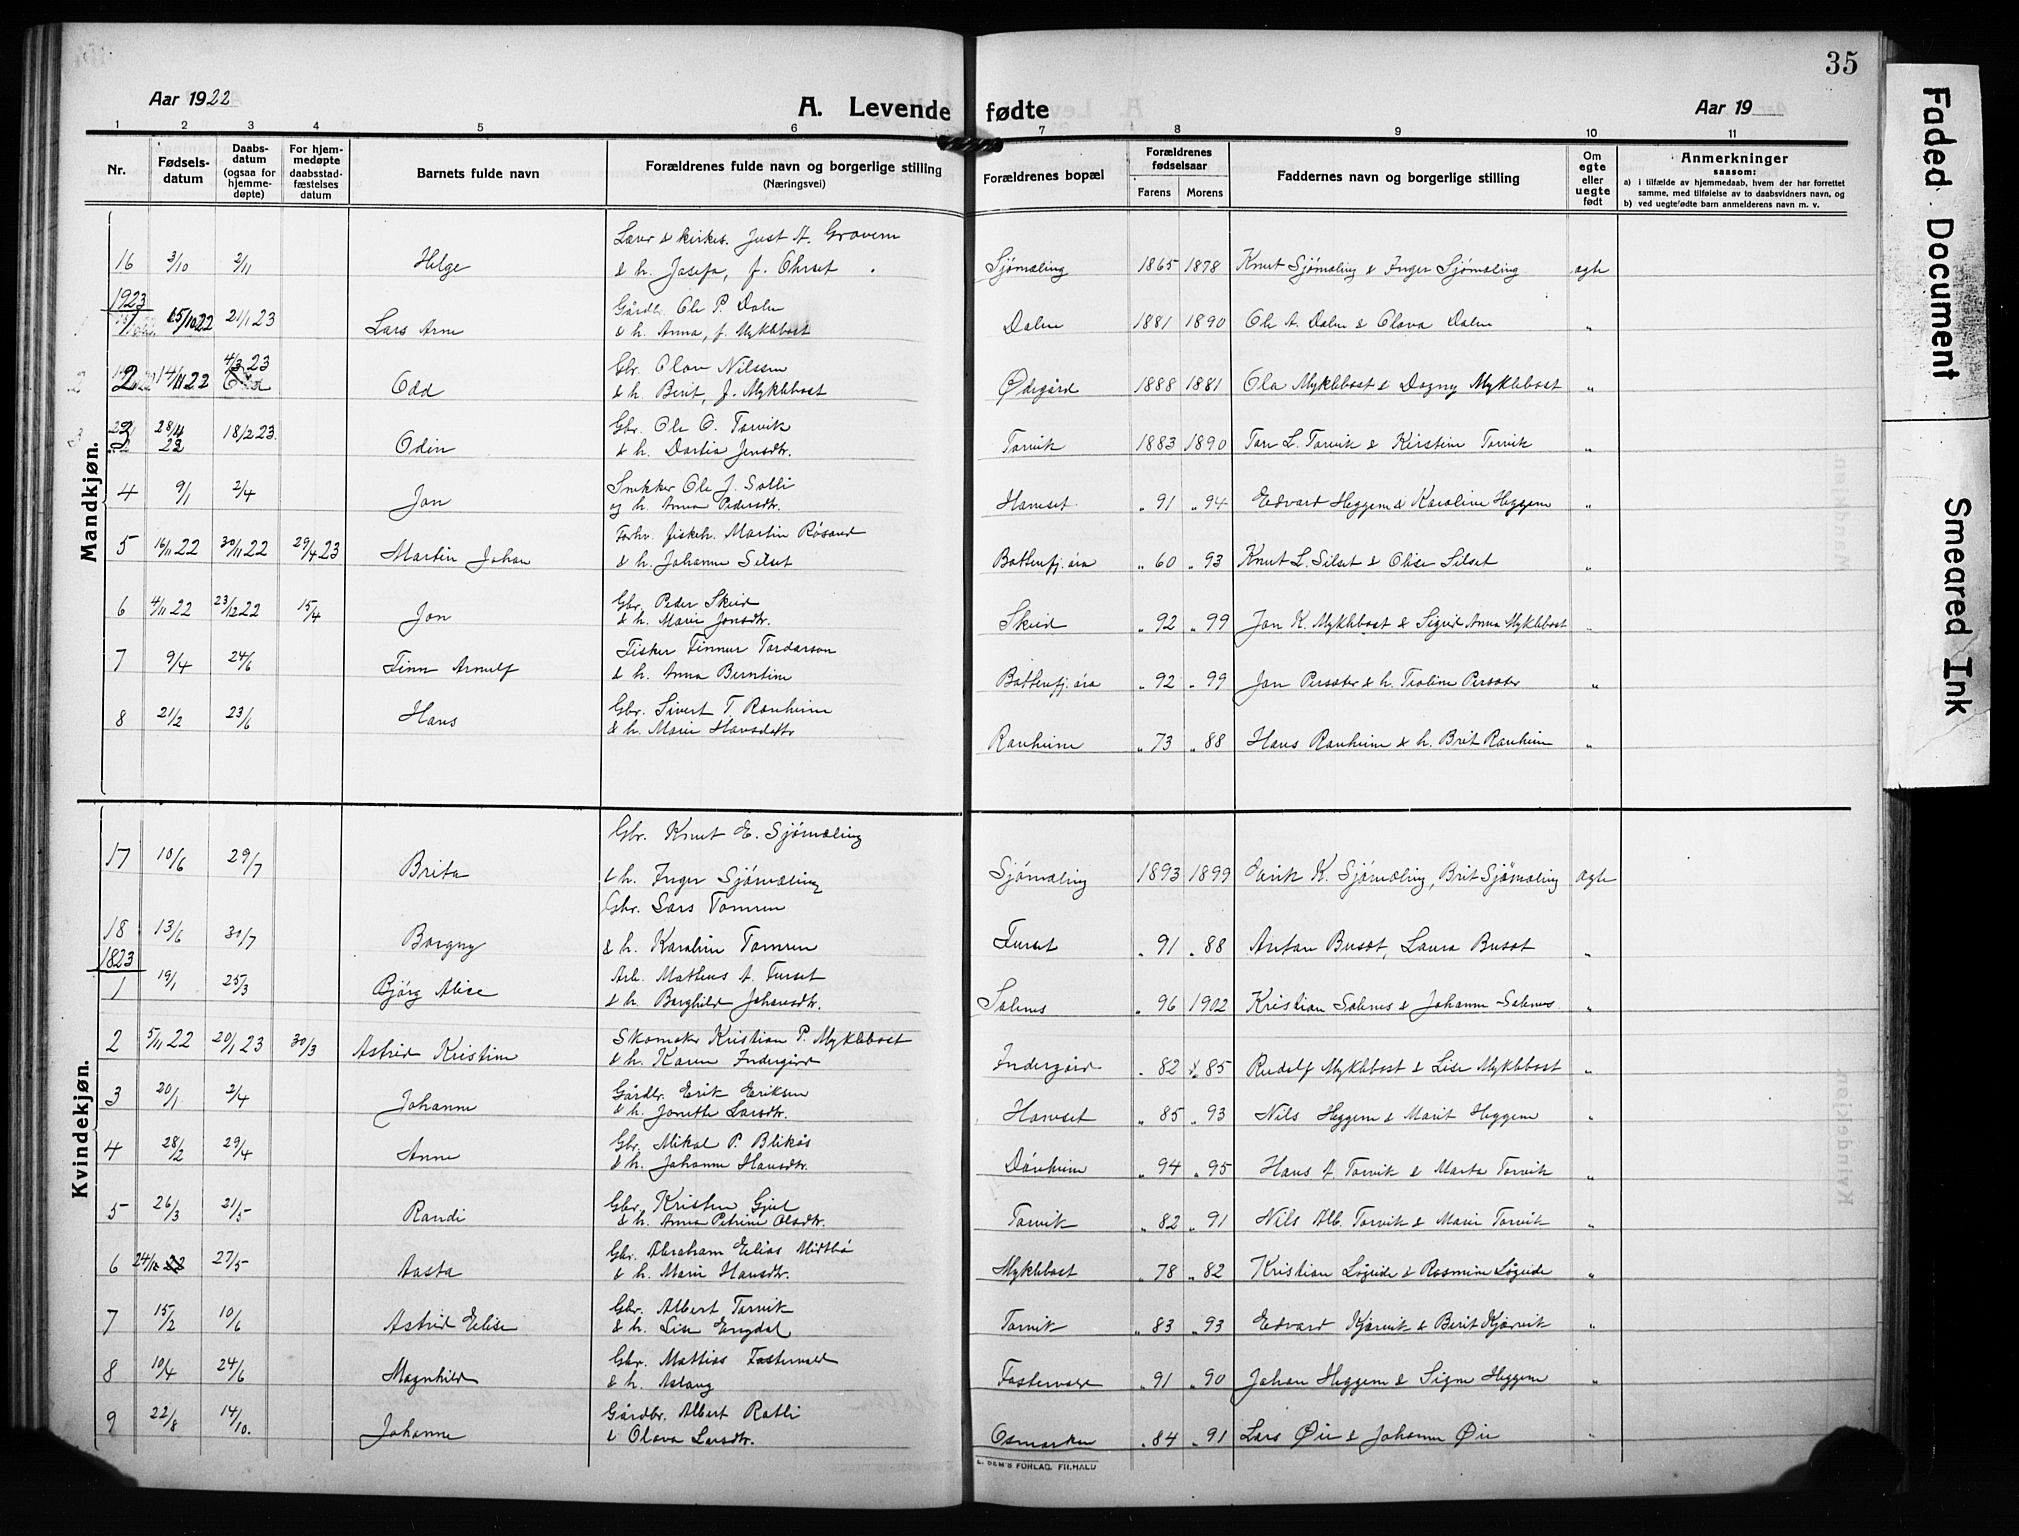 35
Aar 1922
A. Levende fødte
Aar 19
1 2 3 4 5 6 7 8 9 10 11
Nr.
Fødsels-
datum
Daabs-
datum
(ogsaa for
hjemme-
døpte)
For hjem-
medøpte
daabsstad-
fæstelses
datum
Barnets fulde navn
Forældrenes fulde navn og borgerlige stilling
(Næringsvei)
Forældrenes bopæl
Forældrenes
fødselsaar
Farens Morens
Faddernes navn og borgerlige stilling
Om
egte
eller
uegte
født
Anmerkninger
saasom:
a) i tilfælde av hjemmedaab, hvem der har forrettet
samme, med tilføielse av to daabsvidners navn, og
b) ved uegte fødte barn anmelderens navn m. v.
Mandkjøn.
Lærer & kirkes. Just A. Gravem
16 3/10 2/11 Helge & h. Josefa, f. Ohrset Sjømæling 1865 1878 Knut Sjømæling & Inger Sjømæling ægte
1923
Gårdbr. Ole P. Dalen
1 15/10 22 21/1 23 Lars Arne & h. Anna, f. Myklebost Dalen 1881 1890 Ole A. Dalen & Olava Dalen "
Gbr. Olav Nilssen
2 14/11 22 4/3 23 Odd & h. Berit, f. Myklebost Ødegård 1888 1881 Ola Myklebost & Dagny Myklebost "
Gbr. Ole O. Torvik
3 28/4 22 18/2 23 Odin & h. Dortea Jensdtr. Torvik 1883 1890 Tore L. Torvik & Kirstine Torvik "
Snekker Ole J. Solli
4 9/1 2/4 Jon og h. Anna Pedersdtr. Harset " 91 " 94 Edvard Heggem & Karoline Heggem "
Forhv. fiskeh. Martin Røsand
5 16/11 22 30/11 22 29/4 23 Martin Johan & h. Johanne Silset Battenfj. øra " 60 " 93 Knut L. Silset & Olise Silset "
Gbr. Peder Skeid
6 4/11 22 23/12 22 15/4 Jon & h. Marie Jonsdtr. Skeid " 92 " 99 Jon K. Myklebost & Sigrid Anna Myklebost "
Fisker Finnur Tordarson
7 9/4 24/6 Finn Arnulf & h. Anna Berntine Battenfj. øra " 92 " 99 Jon Persæter & h. Teoline Persæter "
Gbr. Sivert T. Ranheim
8 21/2 23/6 Hans & h. Marie Hansdattr Ranheim " 73 " 88 Hans Ranheim & h. Brit Ranheim "
Kvindekjøn.
Gbr. Knut E. Sjømæling
17 10/6 29/7 Brita & h. Inger Sjømæling Sjømæling 1893 1899 Eirik K. Sjømæling, Brit Sjømæling ægte
Gbr. Lars Tomren
18 13/6 30/7 Borgny & h. Karoline Tomren Furset " 91 " 88 Anton Busæt, Laura Busæt "
1823
Arb. Matheus A. Furset
1 19/1 25/3 Bjørg Alise & h. Borghild Johansdtr. Solenes " 96 1902 Kristian Solenes & Johanne Solenes "
Skomaker Kristian P. Myklebost
2 5/11 22 20/1 23 30/3 Astrid Kristine & h. Karen Indergård Indergård " 82 " 85 Rudolf Myklebost & Lise Myklebost "
Gårdbr. Erik Eriksen
3 20/1 2/4 Johanne & h. Jonette Larsdtr. Harset " 85 " 93 Nils Heggem & Marit Heggem "
Gbr. Mikal P. Blikås
4 28/2 29/4 Anne & h. Johanne Hansdtr. Dønheim " 94 " 95 Hans A. Torvik & Marta Torvik "
Gbr. Kristen Gjul
5 26/3 21/5 Randi & h. Anna Petrine Olsdtr. Torvik " 82 " 91 Nils Alb. Torvik & Marie Torvik "
Gbr. Abraham Elias Midtbø
6 24/12 22 27/5 Aasta & h. Marie Hansdtr. Myklebost " 78 " 82 Kristian Løgeide & Rasmine Løgeide "
Gbr. Albert Torvik
7 15/2 10/6 Astrid Elise & h. Lise Engdal Torvik " 83 " 93 Edvard Kjørvik & Berit Kjørvik "
Gbr. Mattias Fostervold
8 10/4 24/6 Magnhild & h. Aslaug Fostervold " 91 " 90 Johan Heggem & Signe Heggem "
Gårdbr. Albert Rotli
9 22/8 14/10. Johanne & Olava Larsdtr. Osmarken " 84 " 91 Lars Øie & Johanne Øie "
FORLAG. FR.HALD
Faded Document
Smeared Ink